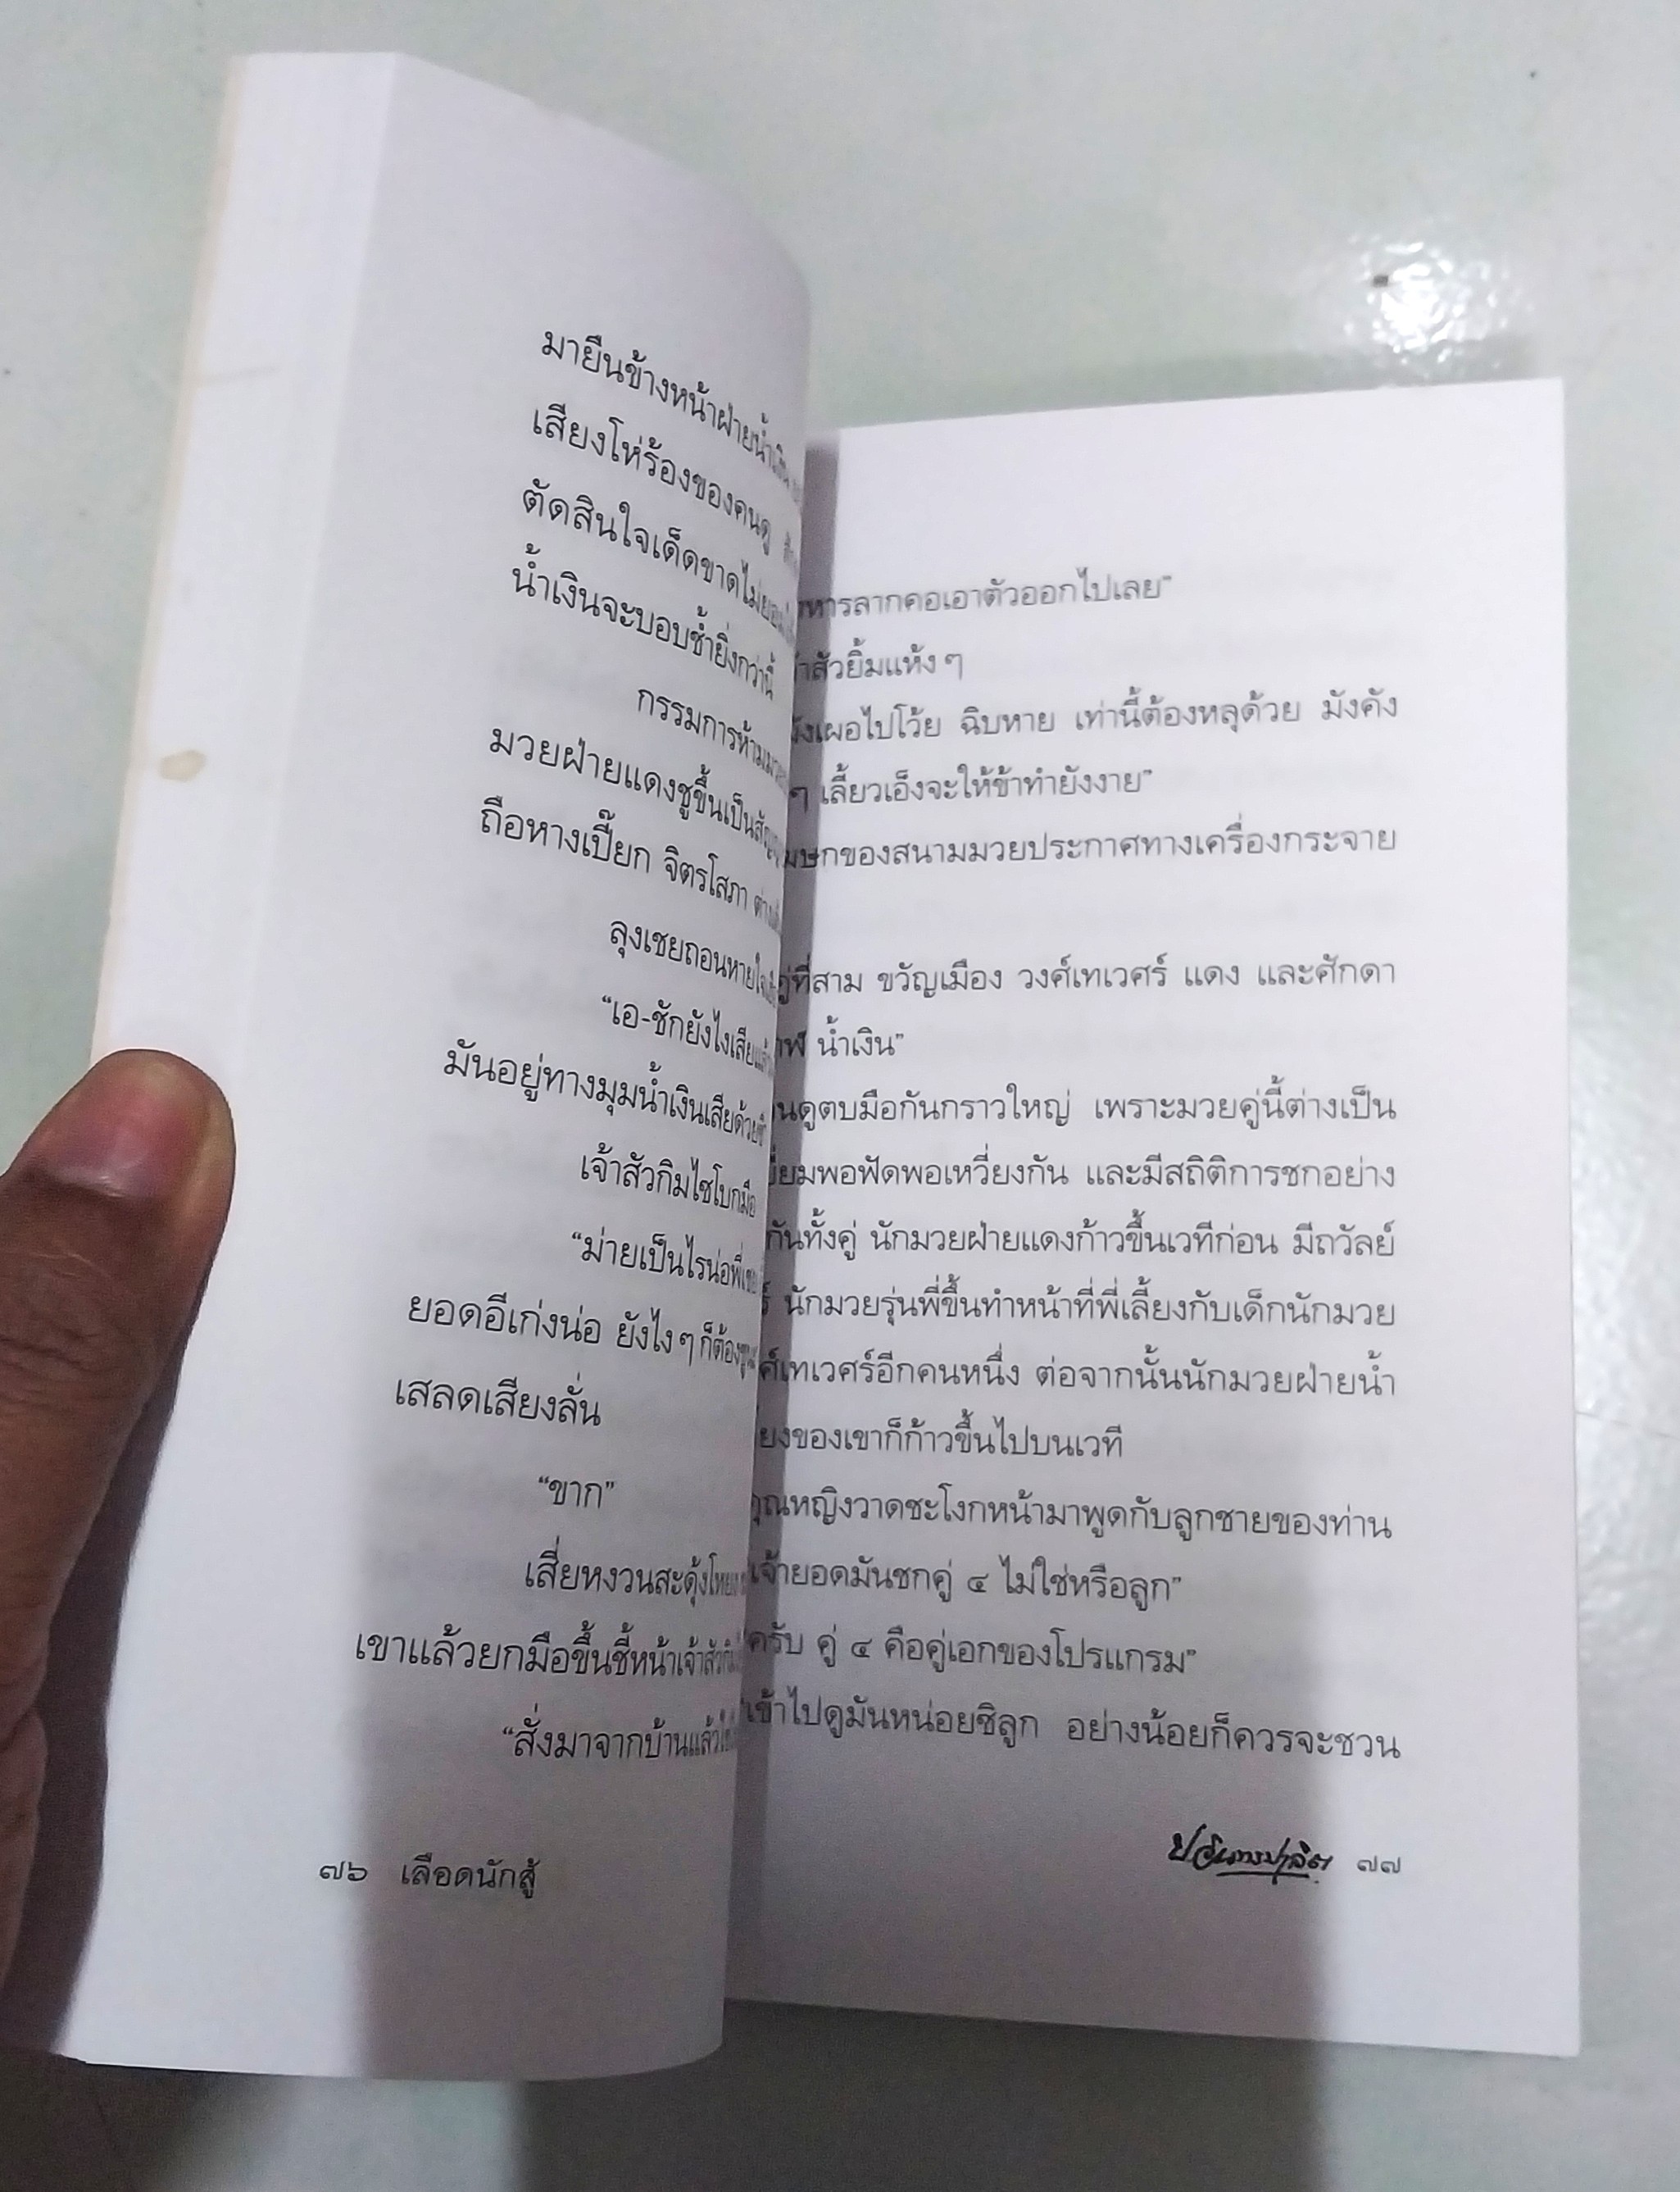 มายืนข้างหน้าฝ่ายน้ำเงิน
เสียงโห่ร้องของคนดู
ตัดสินใจเด็ดขาดไม่ยอม
น้ำเงินจะบอบช้ำยิ่งกว่านี้
กรรมการห้ามมวย
มวยฝ่ายแดงชูขึ้นเป็น
ถือหางเปี๊ยก จิตรโสภา
ลุงเชยถอนหายใจ
“เอ-ชักยังไงเสียแล้ว
มันอยู่ทางมุมน้ำเงินเสียด้วยซี
เจ้าสัวกิมไซโบกมือ
“ม่ายเป็นไรน่อพี่เชย
ยอดอีเก่งน่อ ยังไงๆ ก็ต้อง
เสลดเสียงลั่น
“ขาก”
เสี่ยหงวนสะดุ้งโหยง
เขาแล้วยกมือขึ้นชี้หน้าเจ้าสัว
“สั่งมาจากบ้านแล้ว
๗๖ เลือดนักสู้
หารลากคอเอาตัวออกไปเลย”
สัวยิ้มแห้งๆ
เผอไปโว้ย ฉิบหาย เท่านี้ต้องหลุด้วย มังคัง
ๆ เลี้ยวเอ็งจะให้ข้าทำยังงาย”
ษกของสนามมวยประกาศทางเครื่องกระจาย
คู่ที่สาม ขวัญเมือง วงศ์เทเวศร์ แดง และศักดา
น้ำเงิน”
นดูตบมือกันกราวใหญ่ เพราะมวยคู่นี้ต่างเป็น
ยมพอฟัดพอเหวี่ยงกัน และมีสถิติการชกอย่าง
กันทั้งคู่ นักมวยฝ่ายแดงก้าวขึ้นเวทีก่อน มีถวัลย์
ร์ นักมวยรุ่นพี่ขึ้นทำหน้าที่พี่เลี้ยงกับเด็กนักมวย
ศ์เทเวศร์อีกคนหนึ่ง ต่อจากนั้นนักมวยฝ่ายน้ำ
ยงของเขาก็ก้าวขึ้นไปบนเวที
คุณหญิงวาดชะโงกหน้ามาพูดกับลูกชายของท่าน
เจ้ายอดมันชกคู่ ๔ ไม่ใช่หรือลูก”
ครับ คู่ ๔ คือคู่เอกของโปรแกรม”
เข้าไปดูมันหน่อยซิลูก อย่างน้อยก็ควรจะชวน
ป.อินทรปาลิต ๗๗